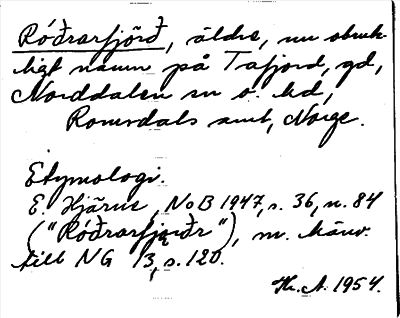 Róðrarfjõrð, äldre, nu obruk-
ligt namn på Tafjord, gd,
Norddalen sn o. hd,
Romsdals amt, Norge.
Etymologi.
E. Hjärne, NoB 1947, s. 36, n. 84
("Róðrarfjǫrðr"), m. hänv.
till NG 13, s. 120.
Th. A. 1954.